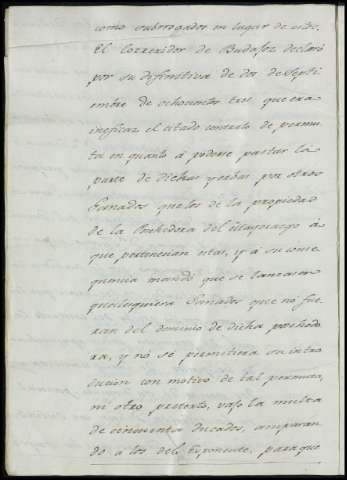 como subrrogados en lugar de ellos.
El Correxidor de Badajoz declaró
por su difinitiva de dos de Septi
embre de ochocientos tres, que era
ineficaz el citado contrato de permu
ta en quanto á poderse pastar la
parte de dichas yerbas por otros
Ganados que los de la propiedad
de la Pohedora del Mayorazgo á
que pertenecian estas, y á su conse
quencia mandó que se lanzasen
qualesquiera Ganados que no fue
ran del dominio de dicha poehedo
ra, y nó se permitiera su intro
duccion con motivo de tal permuta,
ni otro pretexto, vajo la multa
de cincuenta ducados, amparan
do á los del Exponente, para que